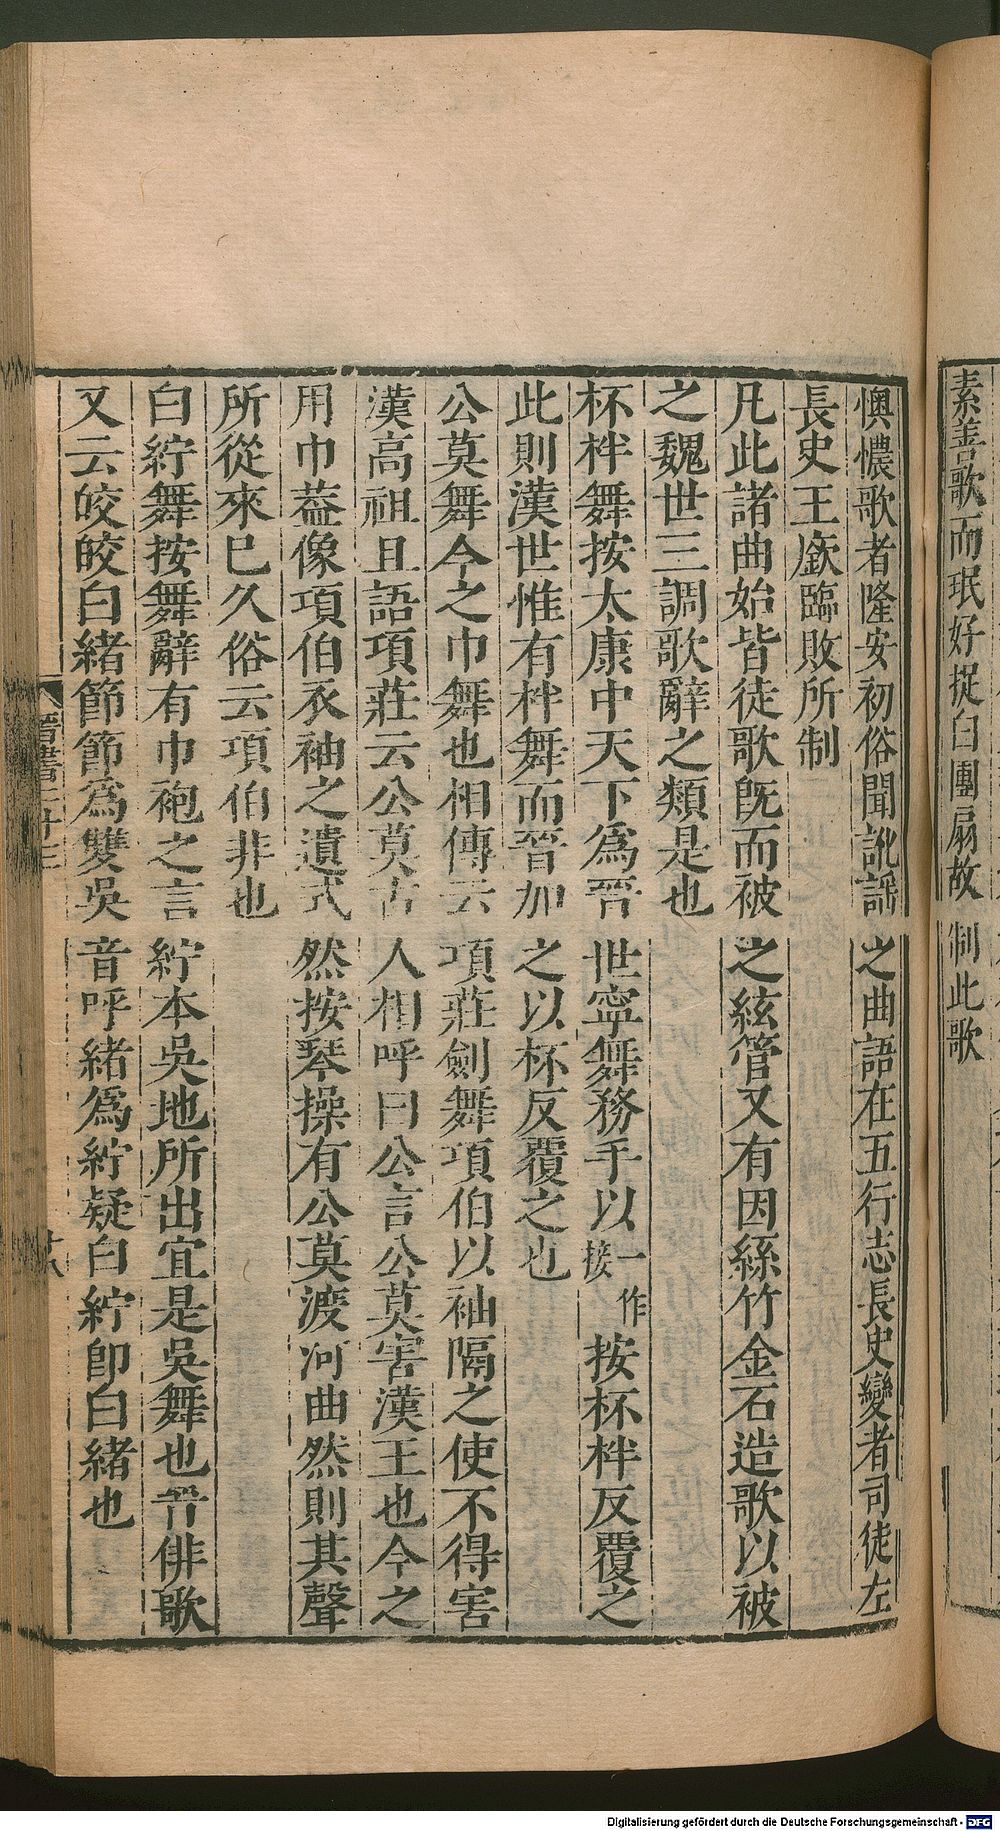 素善歌而珉好捉白團扇故制此歌
懊憹歌者隆安初俗聞訛謡之曲語在五行志長史變者司徒左
長史王廞臨敗所制
凡此諸曲始皆徒歌旣而被之絃管又有因絲竹金石造歌以被
之魏世三調歌辭之類是也
杯柈舞按太康中天下爲晉世寧舞務手以一作接按杯柈反覆之
此則漢世惟有柈舞而晉加之以杯反覆之也
公莫舞今之巾舞也相傳云項莊劍舞項伯以袖隔之使不得害
漢高祖且語項莊云公莫古人相呼曰公言公莫害漢王也今之
用巾葢像項伯衣袖之遺式然按琴操有公莫渡河曲然則其聲
所從來已久俗云項伯非也
白紵舞按舞辭有巾袍之言紵本吳地所出宜是吳舞也晉俳歌
又云皎皎白緒節節爲雙吳音呼緒爲紵疑白紵卽白緒也
晉書二十三
十八
Digitalisierung gefördert durch die Deutsche Forschungsgemeinschaft - DFG